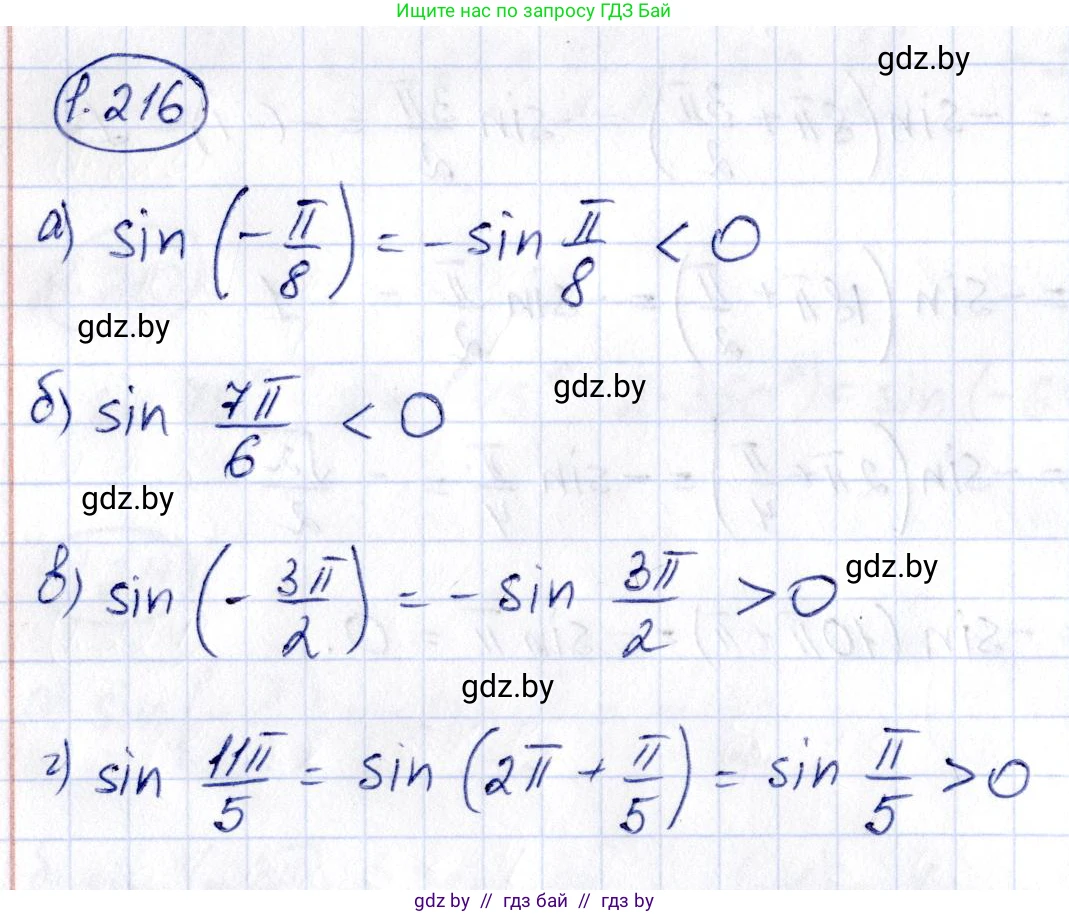 Ищите нас по запросу ГДЗ Бай
gdz.by
1.216
а) sin (-π/8) = -sin π/8 < 0
gdz.by
б) sin 7π/6 < 0
gdz.by
gdz.by
в) sin (-3π/2) = -sin 3π/2 > 0
gdz.by
gdz.by
г) sin 11π/5 = sin (2π + π/5) = sin π/5 > 0
gdz.by // гдз бай // gdz.by